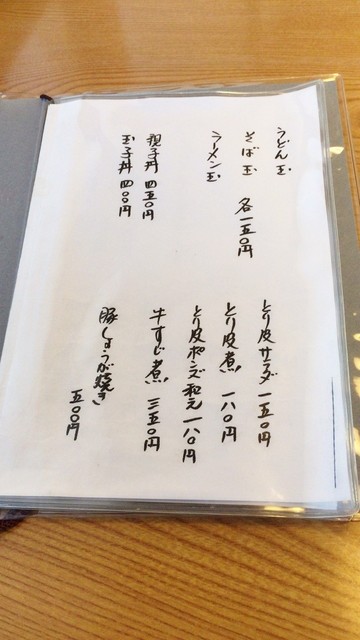 うどん玉
そば玉 各一五〇円
ラーメン玉
親子丼 四五〇円
玉子丼 四〇〇円
とり皮サラダ 一五〇円
とり皮煮 一八〇円
とり皮ポン酢和え 一八〇円
牛すじ煮 三五〇円
豚しょうが焼き
五〇〇円